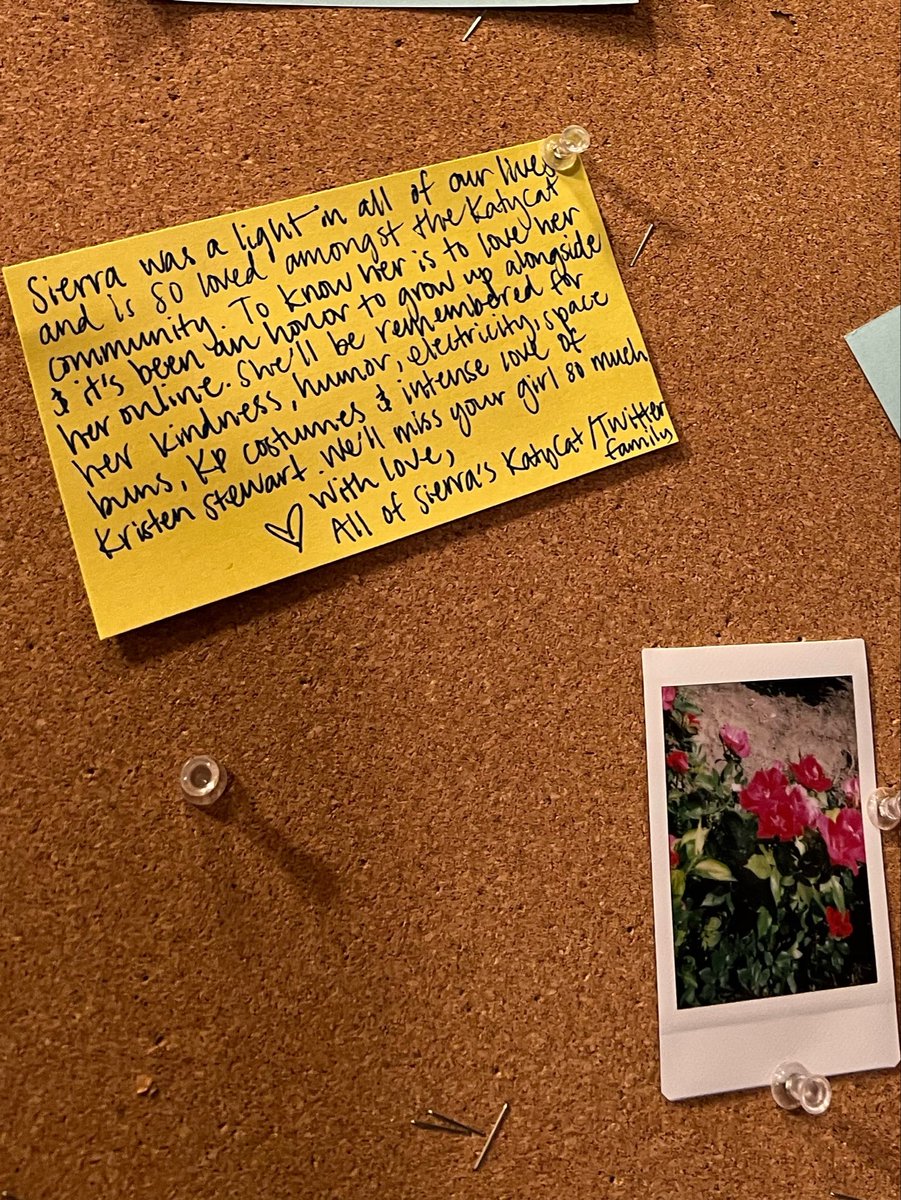 Sierra was a light in all of our lives
and is so loved amongst the Katycat
community. To know her is to love her
& it's been an honor to grow up alongside
her online. She'll be remembered for
her kindness, humor, electricity, space
buns, KP costumes & intense love of
Kristen Stewart. We'll miss your girl so much
♡ With love,
All of Sierra's KatyCat/Twitter
family